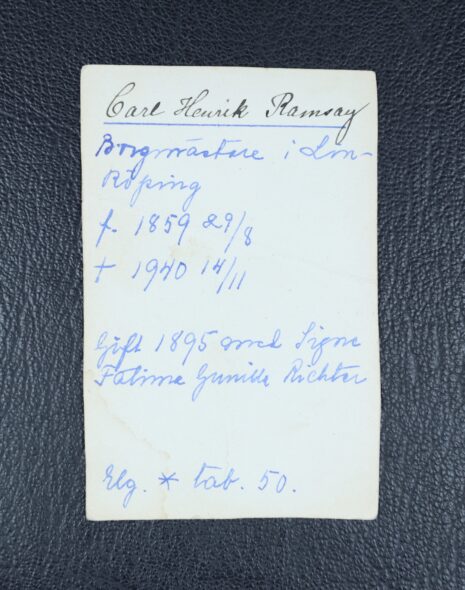 Carl Henrik Ramsay
Borgmästare i Lin-
köping
f. 1859 29/8
† 1940 14/11
Gift 1895 med Signe
Fatima Gunilla Richter
Elg. * tab. 50.